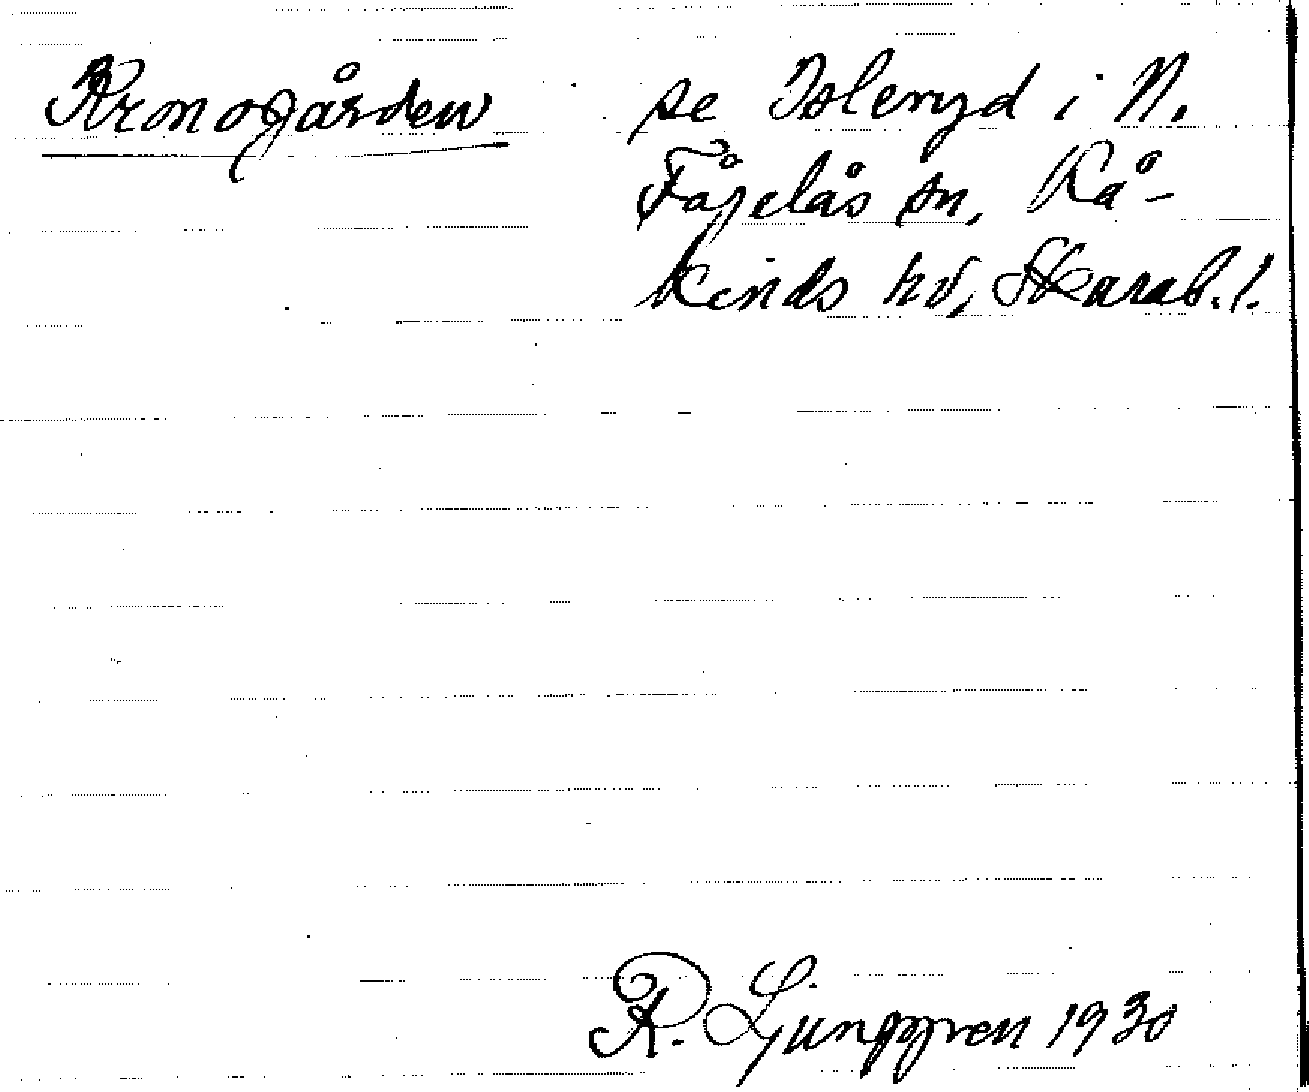 Kronogården se Isleryd i N.
Fågelås sn, Kå-
kinds hd, Skarab.l.
R. Ljunggren 1930